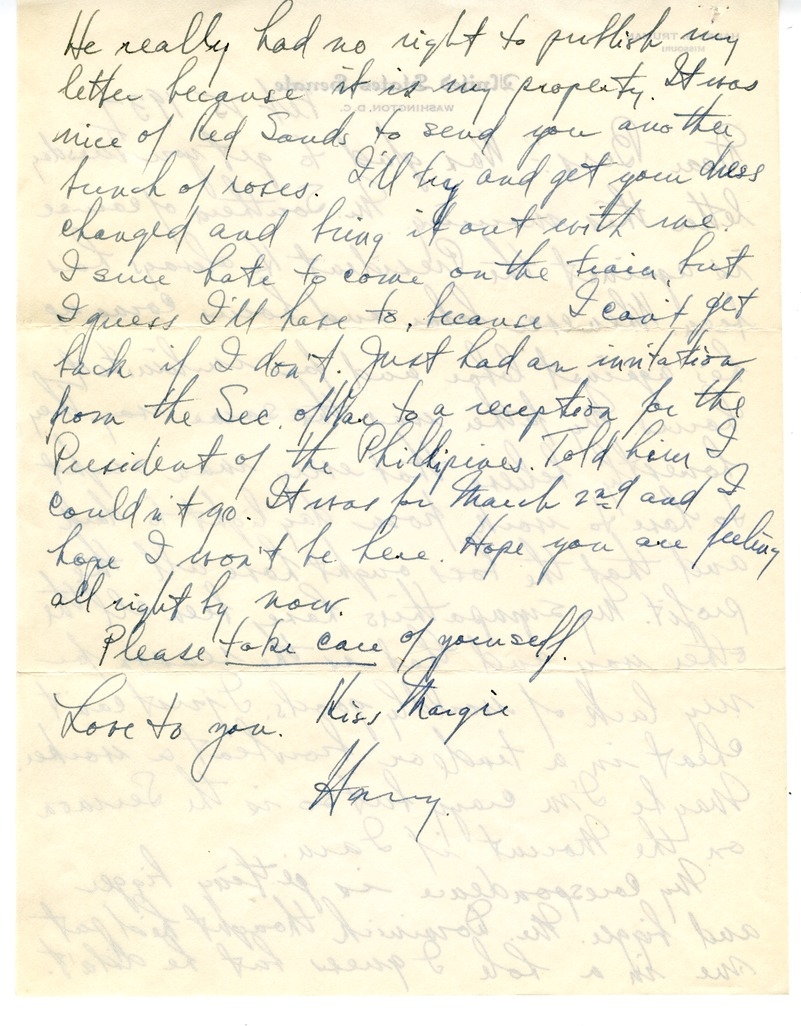 He really had no right to publish my
letter because it is my property. It was
nice of Red Sands to send you another
bunch of roses. I'll try and get your dress
changed and bring it out with me.
I sure hate to come on the train, but
I guess I'll have to, because I can't get
back if I don't. Just had an invitation
from the Sec. of War to a reception for the
President of the Phillipines. Told him I
couldn't go. It was for March 2nd and I
hope I won't be here. Hope you are feeling
all right by now.
Please take care of yourself.
Love to you. Kiss Margie
Harry.